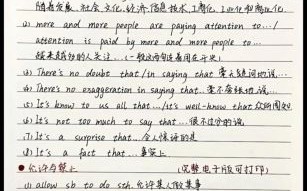 随着发展 社会、文化、经济、信息技术、工业化
(2) more and more people are paying attention to.../
attention is paid by more and more people to...
越来越多的人关注...
(3) There's no doubt that/in saying that 毫无疑问地说...
(4) There's no exaggeration in saying that. 毫不夸张地说...
(5) It's know to us all that.../it's well-know that 众所周知
(6) It's not too much to say that... 很不过分的说
(7) It's a surprise that... 令人惊讶的是
(8) It's a fact that... 事实上
允许与禁止 (完整电子版可打印)
(1) allow sb to do sth. 允许某人做某事